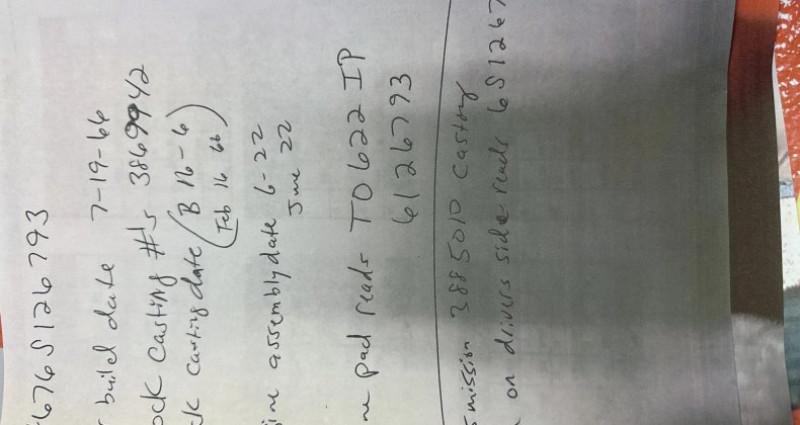 676S126793
build date 7-19-66
ock casting #'s 3869942
ck casting date (B 16-6)
(Feb 16 66)
ine assembly date 6-22
June 22
ne pad reads TO622 IP
6126793
smission 3885010 casting
on drivers side reads 6S1267